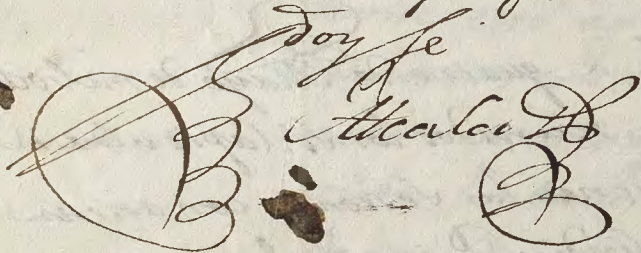 doy fe
Alcala